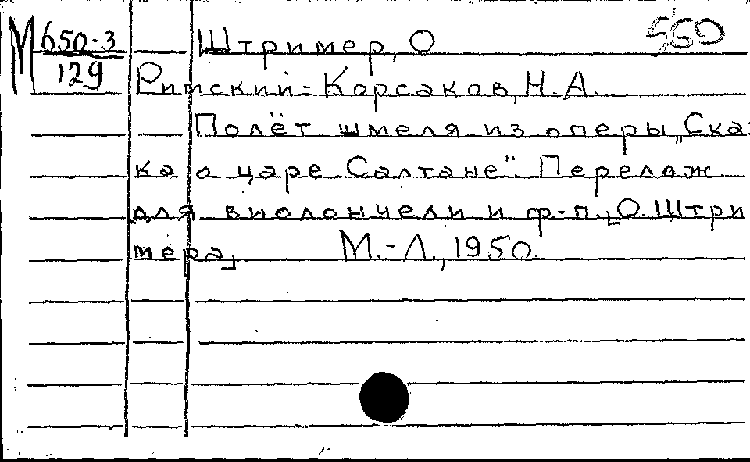 М 650-3
129
Штример, О
560
Римский-Корсаков, Н.А.
Полёт шмеля из оперы „Сказ
ка о царе Салтане". Перелож
для виолончели и ф-п. [О. Штри
мера]
М.-Л., 1950.